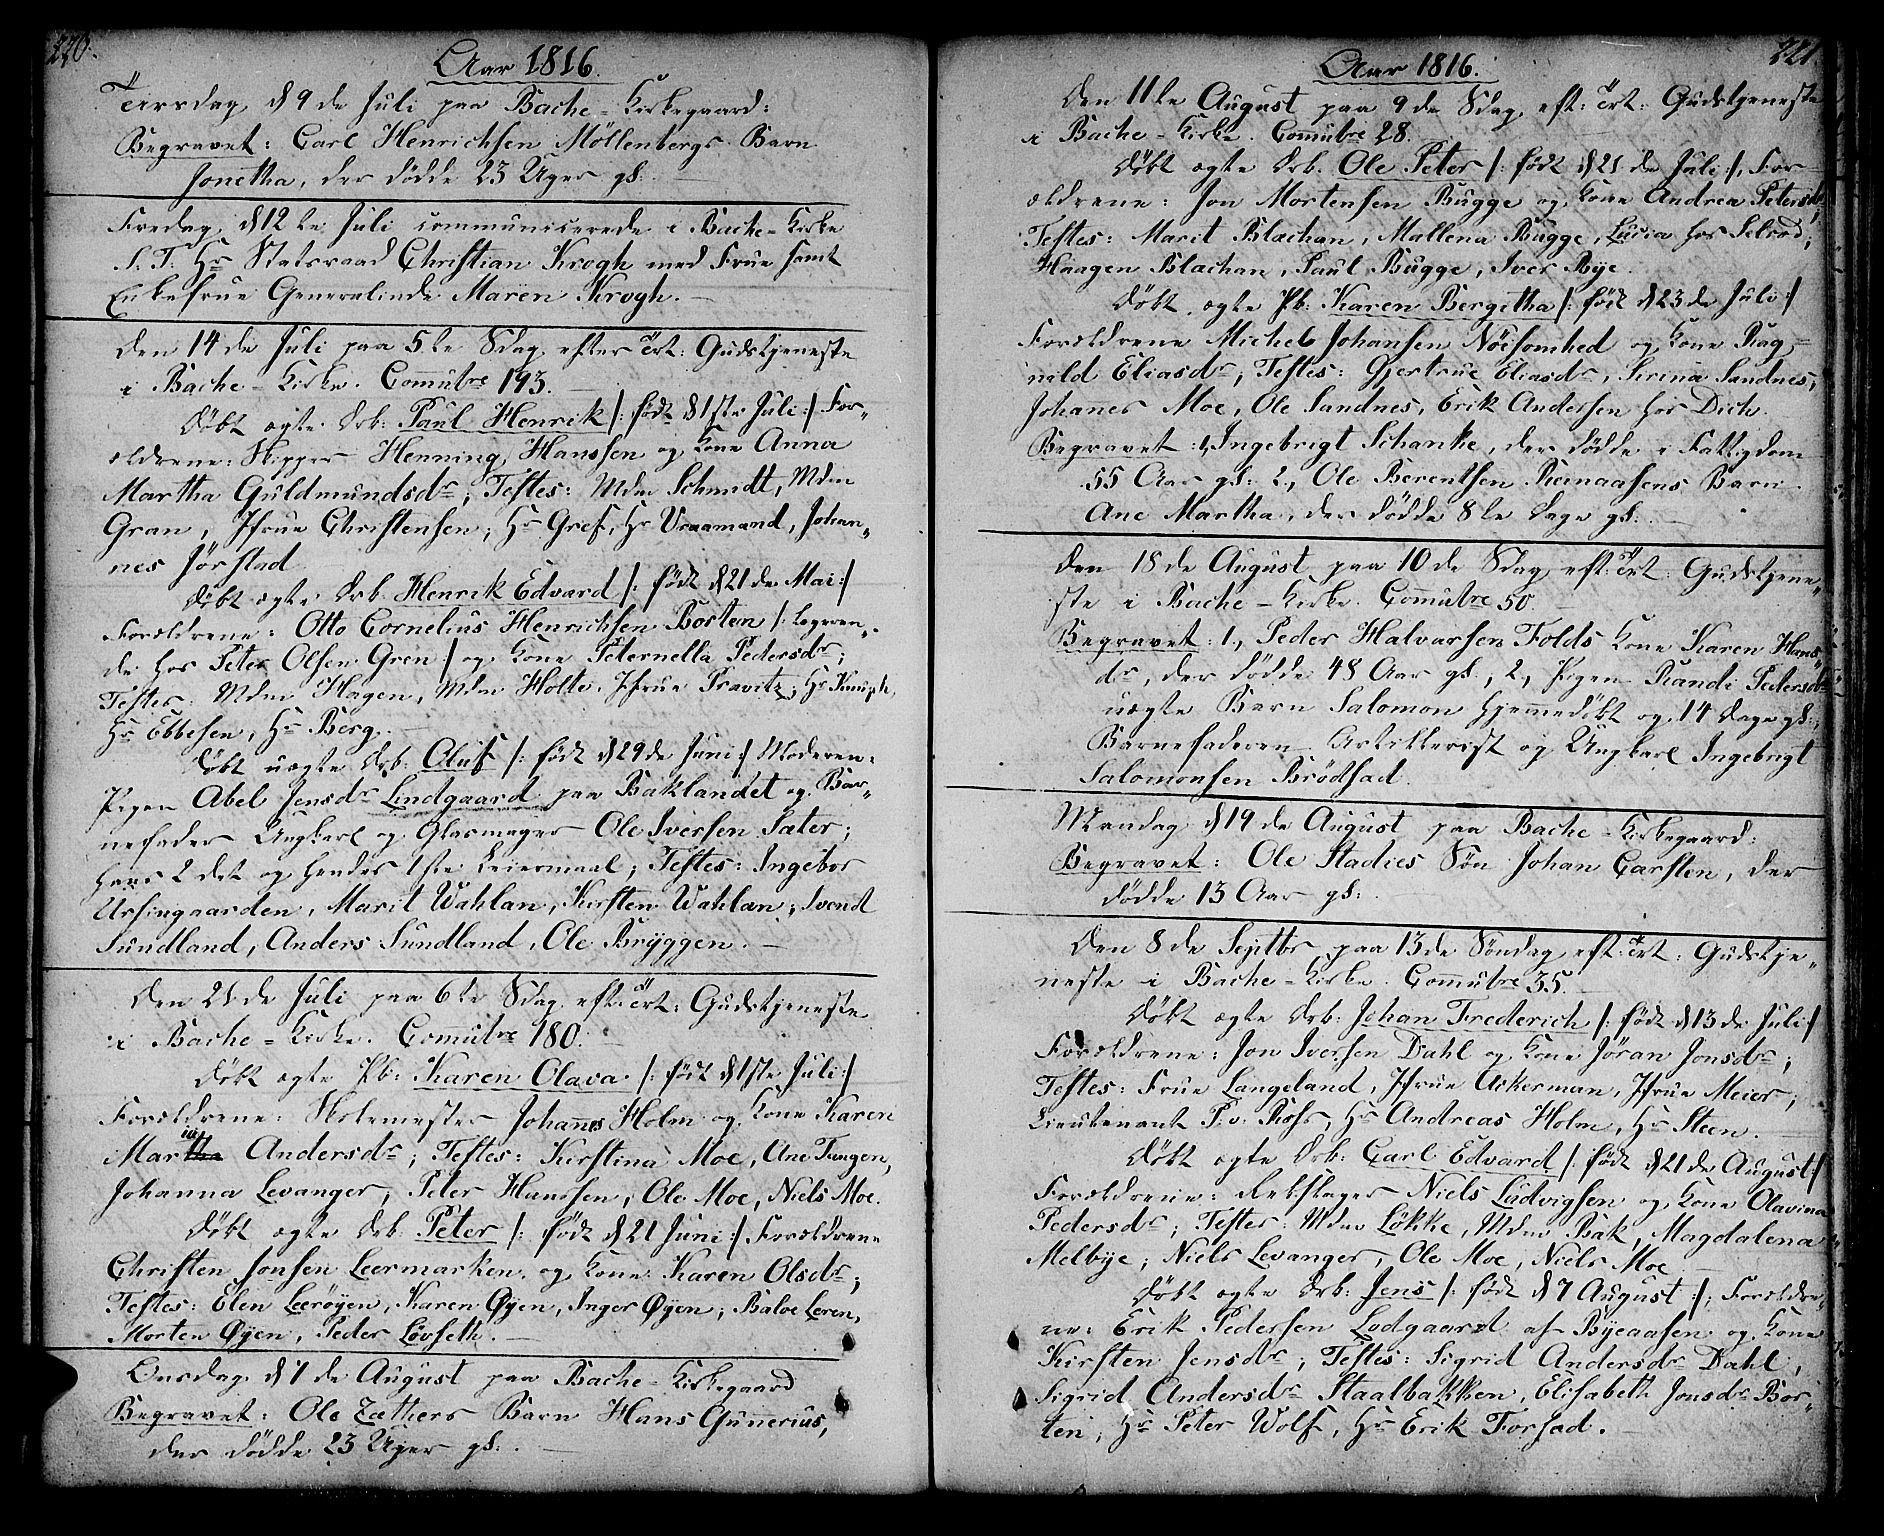 220.
Aar 1816.
Tirsdag d 9de Juli paa Bache-Kirkegaard:
Begravet: Carl Henrichsen Möllenbergs Barn
Jonetha, der dödde 23 Uger gl:
Fredag d 12te Juli communicerede i Bache-Kirke
S. T. Hr Statsraad Christian Krogh med Frue samt
Enkefrue Generalinde Maren Krogh.
Den 14de Juli paa 5te Sdag efter Trt: Gudstjeneste
i Bache-Kirke. Commubre 193.
Döbt ægte Drb: Paul Henrik /: födt d 1ste Juli :/ For-
ældrene: Skipper Henning Hanssen og Kone Anna
Martha Guldmundsdr; Testes: Mdm Schmidt, Mdm
Gran, Jfrue Christensen; Hr Gref, Hr Vraamand, Johan-
nes Jörstad
Döbt ægte Drb. Henrik Edvard /: födt d 21de Mai :/
Forældrene: Otto Cornelius Henrichsen Rosten /: Logeren-
de hos Peter Olsen Gren :/ og Kone Peternella Pedersdr;
Testes: Mdm Hagen, Mdm Holte, Jfrue Pravitz; Hr Kniph,
Hr Ebbesen, Hr Berg.
Döbt uægte Drb: Oluf /: födt d 29de Juni :/ Moderen:
Pigen Abel Jensdr Lindgaard paa Baklandet og Bar-
nefader Ungkarl og Glasmager Ole Iversen Sæter;
hans 2det og hendes 1ste Leiermaal; Testes: Ingebor
Ursingaarden, Marit Wahlan, Kirsten Wahlan; Svend
Sundland, Anders Sundland, Ole Bryggen.
Den 21de Juli paa 6te Sdag eft: Trt: Gudstjeneste
i Bache-Kirke. Commubre 180.
Döbt ægte Pb: Karen Olava /: födt d 1ste Juli :/
Forældrene: Skolemester Johannes Holm og Kone Karen
Maria Andersdr; Testes: Kirstina Moe, Ane Tungen,
Johanna Levanger; Peter Hanssen, Ole Moe, Niels Moe.
Döbt ægte Drb. Peter /: födt d 21 Juni :/ Forældrene
Christen Jonsen Leermarken og Kone Karen Olsdr;
Testes: Elen Leeröyen, Karen Øyen, Inger Øyen; Baloe Leren,
Morten Øyen, Peder Lövseth.
Onsdag d 7de August paa Bache-Kirkegaard
Begravet: Ole Zathers Barn Hans Gunnerius,
der dödde 23 Uger gl:
221
Aar 1816.
Den 11te August paa 9de Sdag eft: Trt: Gudstjeneste
i Bache-Kirke. Commubre 28.
Döbt ægte Drb. Ole Peter /: födt d 21de Juli :/, For-
ældrene: Jon Mortensen Bugge og Kone Andrea Petersdr
Testes: Marit Blæchan, Mallena Bugge, Lucia hos Selrod;
Haagen Blæchan, Paul Bugge, Iver Bye.
Döbt ægte Pb: Karen Bergitha /: födt d 23de Juli :/
Forældrene Michel Johansen Nöisomhed og Kone Rag-
nild Eliasdr; Testes: Gjertrue Eliasdr, Kirina Sandnes,
Johanes Moe, Ole Sandnes, Erik Andersen hos Dich
Begravet: 1, Ingebrigt Schanke, der dödde i Fattigdom
55 Aar gl: 2, Ole Berentsen Reinaasens Barn
Ane Martha, der dödde 8te Dage gl:
Den 18de August paa 10de Sdag eft: Trt: Gudstjene-
ste i Bache-Kirke. Commubre 50.
Begravet: 1, Peder Halvarsen Folds Kone Karen Hans-
dr, der dödde 48 Aar gl, 2, Pigen Randi Pedersdr
uægte Barn Salomon hjemmedöbt og 14 Dage gl:,
Barnefaderen Artillerist og Ungkarl Ingebrigt
Salomonsen Brödsad
Mandag d 19de August paa Bache-Kirkegaard:
Begravet: Ole Stadies Sön Johan Carsten, der
dödde 13 Aar gl:
Den 8de Septbr paa 13de Söndag eft: Trt: Gudstje-
neste i Bache-Kirke. Commubre 35.
Döbt ægte Drb: Johan Frederich /: födt d 13de Juli :/
Forældrene: Jon Iversen Dahl og Kone Jöran Jonsdr;
Testes: Frue Langeland, Jfrue Ackerman, Jfrue Meier;
Lieutenant P. v. Rohs, Hr Andreas Holm, Hr Steen.
Döbt ægte Drb: Carl Edvard /: födt d 21de August :/
Forældrene: Rebslager Niels Ludvigsen og Kone Olavina
Pedersdr; Testes: Mdm Lökke, Mdm Bak, Magdalena
Melbye; Niels Levanger, Ole Moe, Niels Moe
Döbt ægte Drb: Jens /: födt d 7 August :/; Forældre-
ne: Erik Pedersen Lodgaard af Byeaasen og Kone
Kirsten Jensdr; Testes: Sigrid Andersdr Dahl,
Sigrid Andersdr Staalbakken, Elisabeth Jonsdr Bor-
ten; Hr Peter Wolf, Hr Erik Forsad.